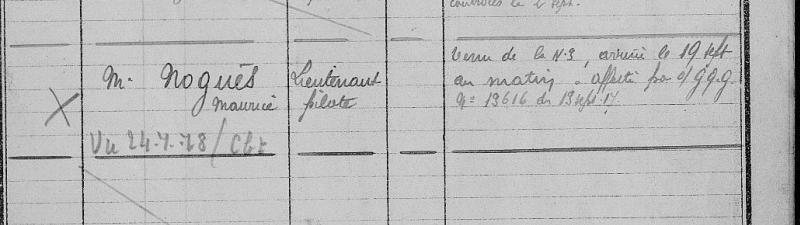 contrôles le 4 sept.
Venu de la N.3, arrivé le 19 sept
M. Noguès Lieutenant au matin. affecté par o/ G.Q.G.
Maurice pilote N° 13616 du 13 sept. 17
X
Vu 24.7.28 / Cbt